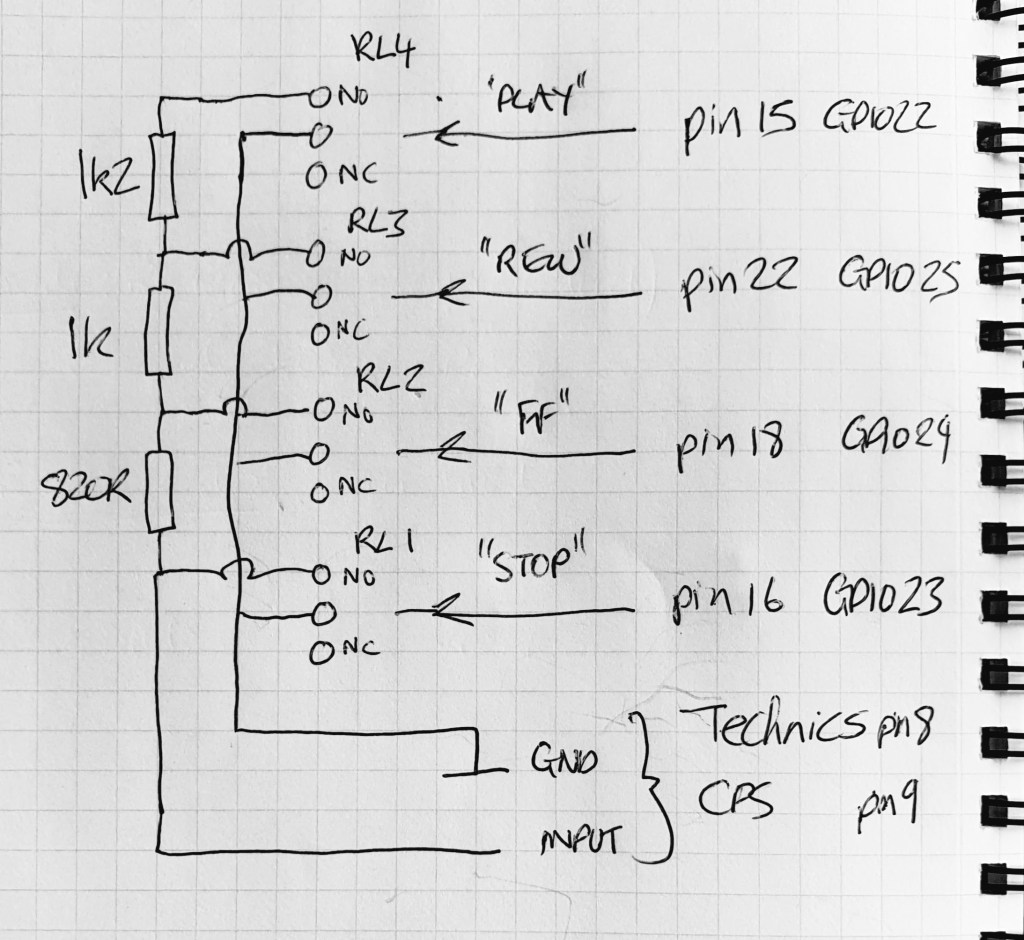 RL4
NO
"PLAY"
pin 15 GPIO22
1k2
NC
RL3
NO
"REW"
pin 22 GPIO25
1k
NC
RL2
NO
"FF"
pin 18 GPIO24
820R
NC
RL1
NO
"STOP"
pin 16 GPIO23
NC
Technics pin8
GND
CPS pin9
INPUT